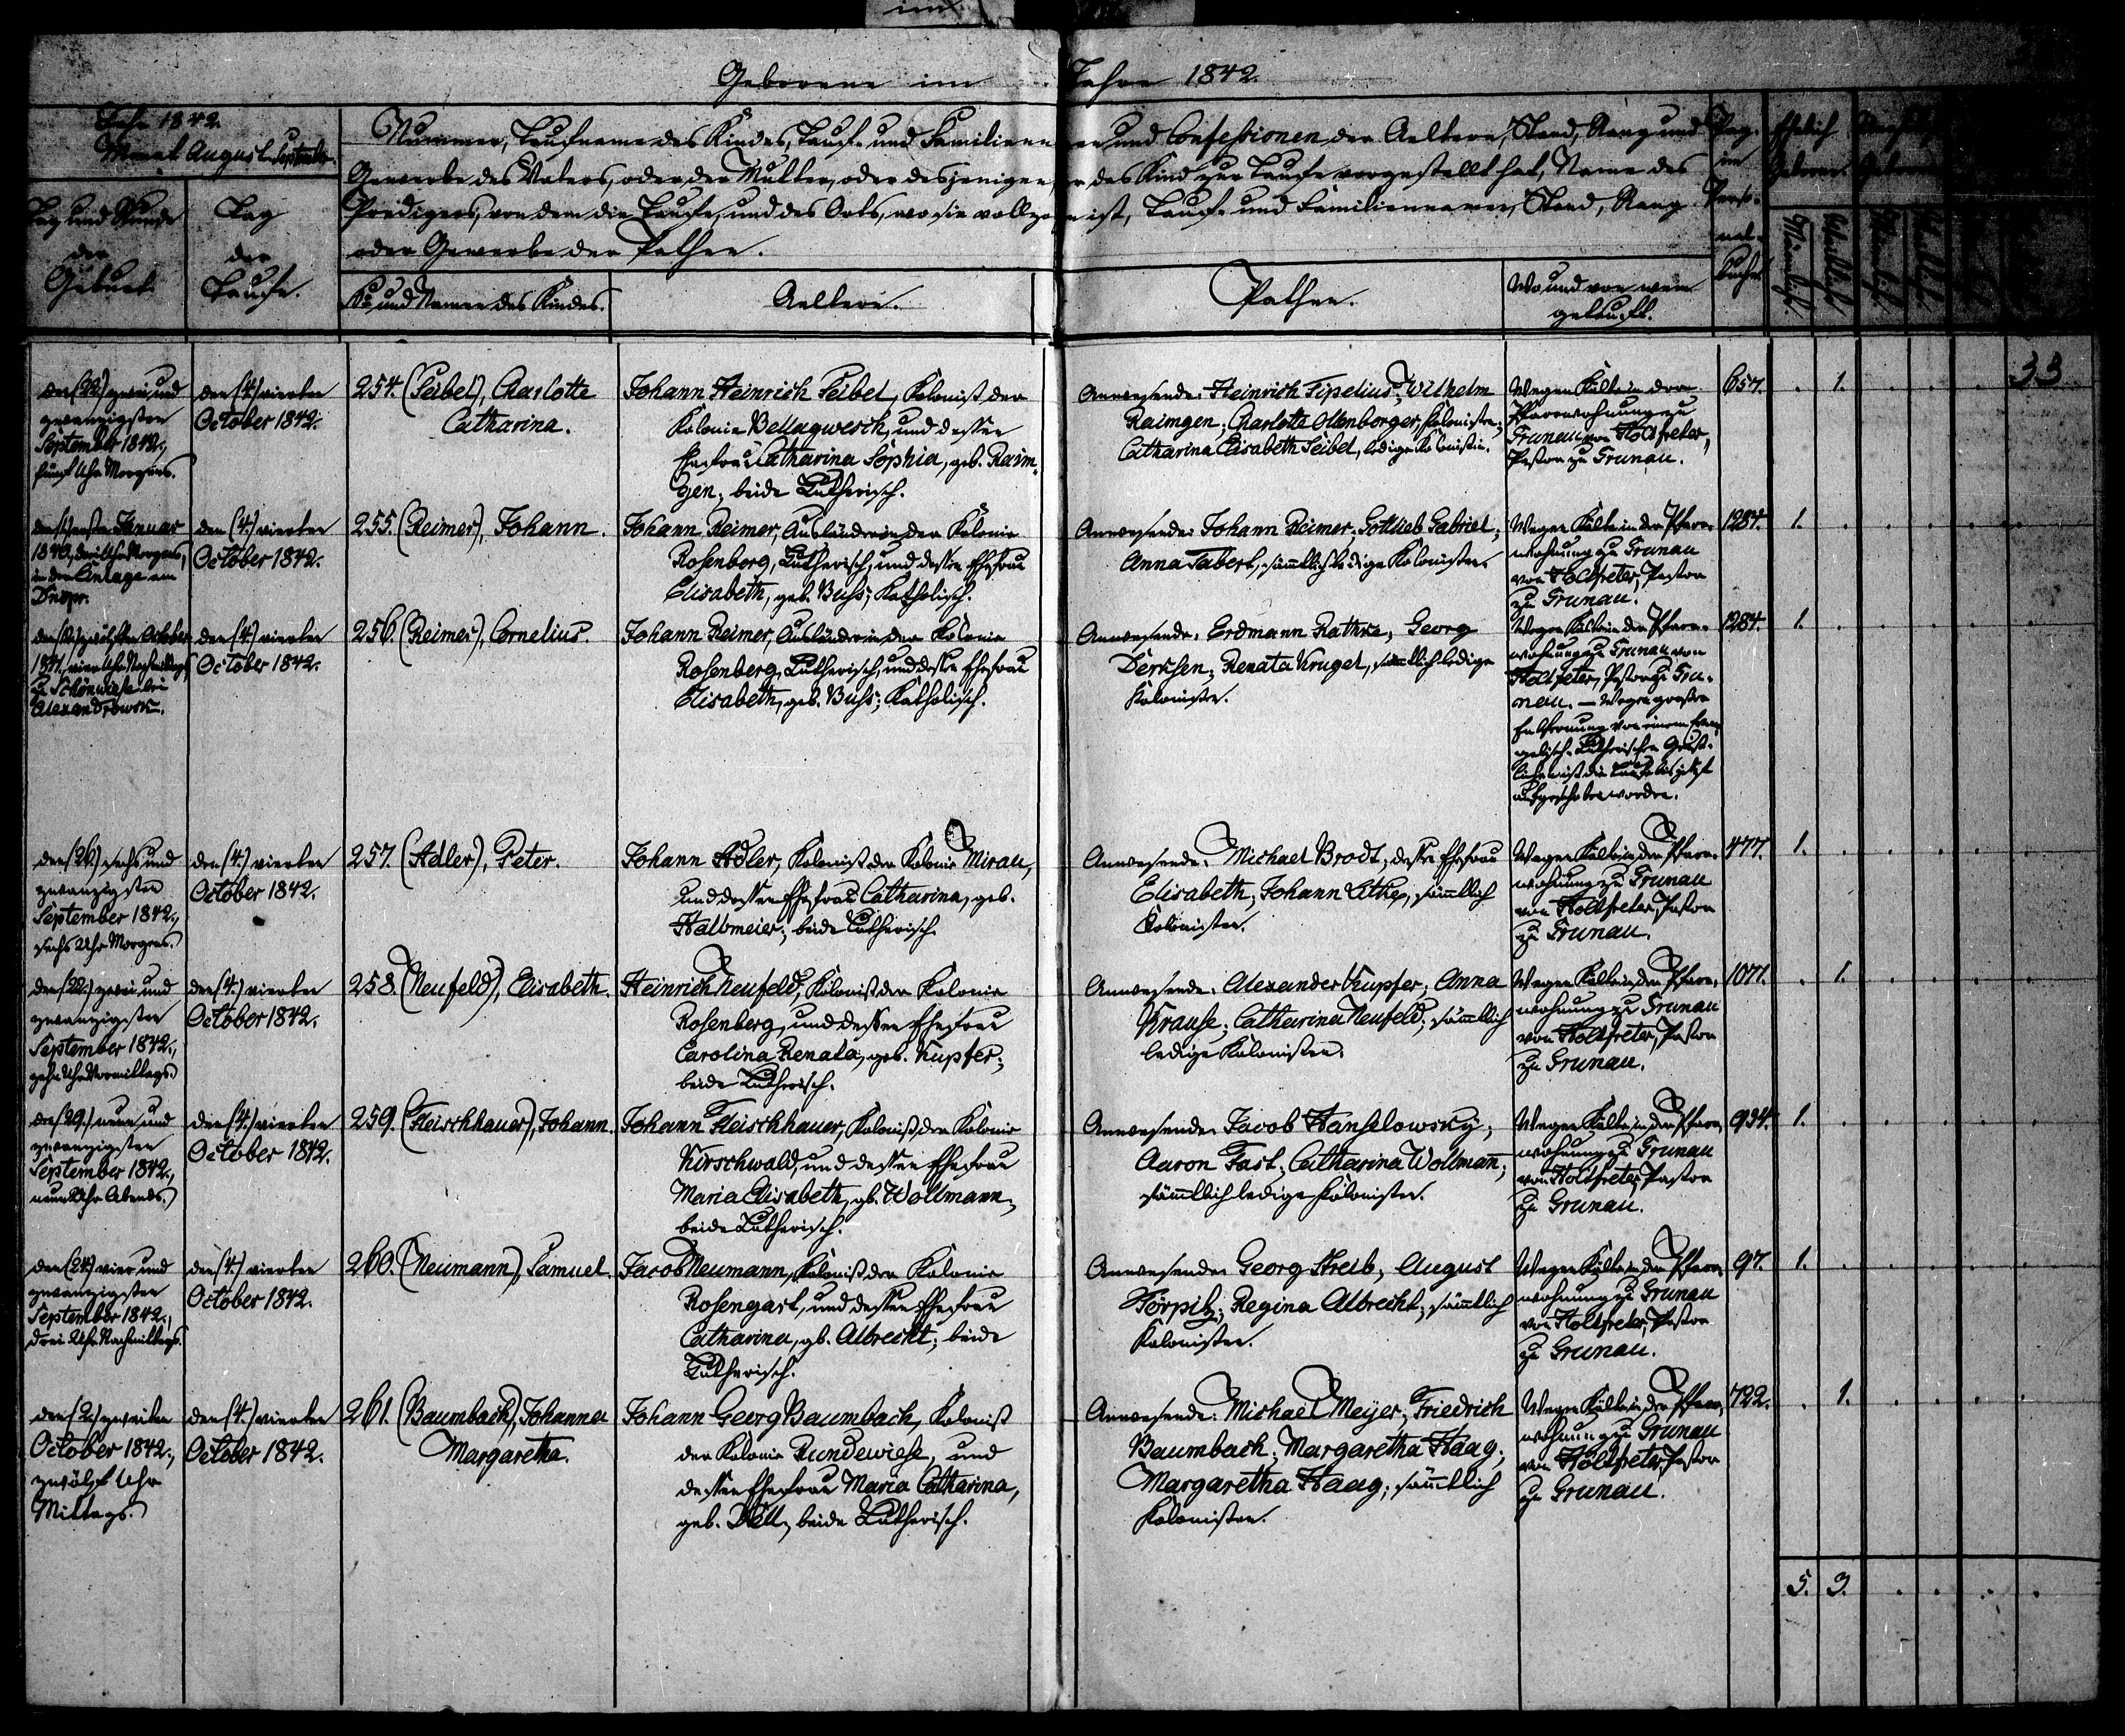 im
Geborene im Jahre 1842.
Jahr 1842.
Monat August September.
Tag und Stunde
der
Geburt.
Tag
der
Taufe.
Nummer, Taufname des Kindes, Tauf- und Familiennamen und Confessionen der Aeltern, Stand, Rang und
Gewerbe des Vaters, oder der Mutter, oder desjenigen, der das Kind zur Taufe vorgestellt hat, Name des
Predigers, von dem die Taufe, und des Orts, wo sie vollzogen ist, Tauf- und Familiennamen, Stand, Rang
oder Gewerbe der Pathen.
No und Namen des Kindes.
Aeltern.
Pathen.
Wo und von wem
getauft.
Pag.
im
Perso-
nal-
buche.
Ehelich
Geborne.
Männlich.
Weiblich.
33
den (22.) zwei und
zwanzigsten
September 1842.,
fünf Uhr Morgens.
den (4.) vierten
October 1842.
254. (Seibel), Charlotte
Catharina.
Johann Heinrich Seibel, Kolonist der
Kolonie Bellagwesch, und dessen
Ehefrau Catharina Sophia, geb. Raim-
gen; beide Lutherisch.
Anwesende: Heinrich Fipelius; Wilhelm
Raimgen; Charlotte Ollenborger, Kolonisten;
Catharina Elisabeth Seibel, ledige Kolonistin.
Wegen Kälte in der
Pfarrwohnung zu
Grunau von Holtfreter,
Pastor zu Grunau.
657. . 1.
den ersten Januar
1840, drei Uhr Morgens,
in der Einlage am
Dnepr.
den (4.) vierten
October 1842.
255. (Reimer), Johann.
Johann Reimer, Ausländer in der Kolonie
Rosenberg, Lutherisch, und dessen Ehefrau
Elisabeth, geb. Buhs; Katholisch.
Anwesende: Johann Reimer; Gottlieb Gabriel;
Anna Tabert, sämmtlich ledige Kolonisten.
Wegen Kälte in der Pfarr-
wohnung zu Grunau
von Holtfreter, Pastor
zu Grunau.
1284. 1.
den (12.) zwölften October
1841, vier Uhr Nachmittags,
zu Schönwiese bei
Alexandrowsk.
den (4.) vierten
October 1842.
256. (Reimer), Cornelius.
Johann Reimer, Ausländer in der Kolonie
Rosenberg, Lutherisch, und dessen Ehefrau
Elisabeth, geb. Buhs; Katholisch.
Anwesende: Erdmann Rathke; Georg
Derksen; Renata Krugel, sämmtlich ledige
Kolonisten.
Wegen Kälte in der Pfarr-
wohnung zu Grunau von
Holtfreter, Pastor zu Gru-
nau. — Wegen grosser
Entfernung von einem Evan-
gelisch-Lutherischen Geist-
lichen ist die Taufe bis jetzt
aufgeschoben worden.
1284. 1.
den (26.) sechs und
zwanzigsten
September 1842.,
sechs Uhr Morgens.
den (4.) vierten
October 1842.
257. (Adler), Peter.
Johann Adler, Kolonist der Kolonie Mirau,
und dessen Ehefrau Catharina, geb.
Halbmeier; beide Lutherisch.
Anwesende: Michael Brodt, dessen Ehefrau
Elisabeth; Johann Lithe, sämmtlich
Kolonisten.
Wegen Kälte in der Pfarr-
wohnung zu Grunau
von Holtfreter, Pastor
zu Grunau.
477. 1.
den (22.) zwei und
zwanzigsten
September 1842.,
zehn Uhr Vormittags.
den (4.) vierten
October 1842.
258. (Neufeld), Elisabeth.
Heinrich Neufeld, Kolonist der Kolonie
Rosenberg, und dessen Ehefrau
Carolina Renata, geb. Kupfer;
beide Lutherisch.
Anwesende: Alexander Kupfer; Anna
Krause; Catharina Neufeld; sämmtlich
ledige Kolonisten.
Wegen Kälte in der Pfarr-
wohnung zu Grunau
von Holtfreter, Pastor
zu Grunau.
1071. . 1.
den (29.) neun und
zwanzigsten
September 1842.,
neun Uhr Abends.
den (4.) vierten
October 1842.
259. (Fleischhauer), Johann.
Johann Fleischhauer, Kolonist der Kolonie
Kirschwald, und dessen Ehefrau
Maria Elisabeth, geb. Wollmann,
beide Lutherisch.
Anwesende: Jacob Hanselowsky;
Aaron Fast; Catharina Wollmann;
sämmtlich ledige Kolonisten.
Wegen Kälte in der Pfarr-
wohnung zu Grunau
von Holtfreter, Pastor
zu Grunau.
934. 1.
den (24.) vier und
zwanzigsten
September 1842.,
drei Uhr Nachmittags.
den (4.) vierten
October 1842.
260. (Neumann), Samuel.
Jacob Neumann, Kolonist der Kolonie
Rosengart, und dessen Ehefrau
Catharina, gb. Albrecht; beide
Lutherisch.
Anwesende: Georg Streib; August
Törpitz; Regina Albrecht; sämmtlich
Kolonisten.
Wegen Kälte in der Pfarr-
wohnung zu Grunau
von Holtfreter, Pastor
zu Grunau.
97. 1.
den (2.) zweiten
October 1842.,
zwölf Uhr
Mittags.
den (4.) vierten
October 1842.
261. (Baumbach), Johanna
Margaretha.
Johann Georg Baumbach, Kolonist
der Kolonie Rundewiese, und
dessen Ehefrau Maria Catharina,
geb. Dell, beide Lutherisch.
Anwesende: Michael Meyer; Friedrich
Baumbach; Margaretha Haag;
Margaretha Haag; sämmtlich
Kolonisten.
Wegen Kälte in der Pfarr-
wohnung zu Grunau
von Holtfreter, Pastor
zu Grunau.
722. . 1.
5. 3.